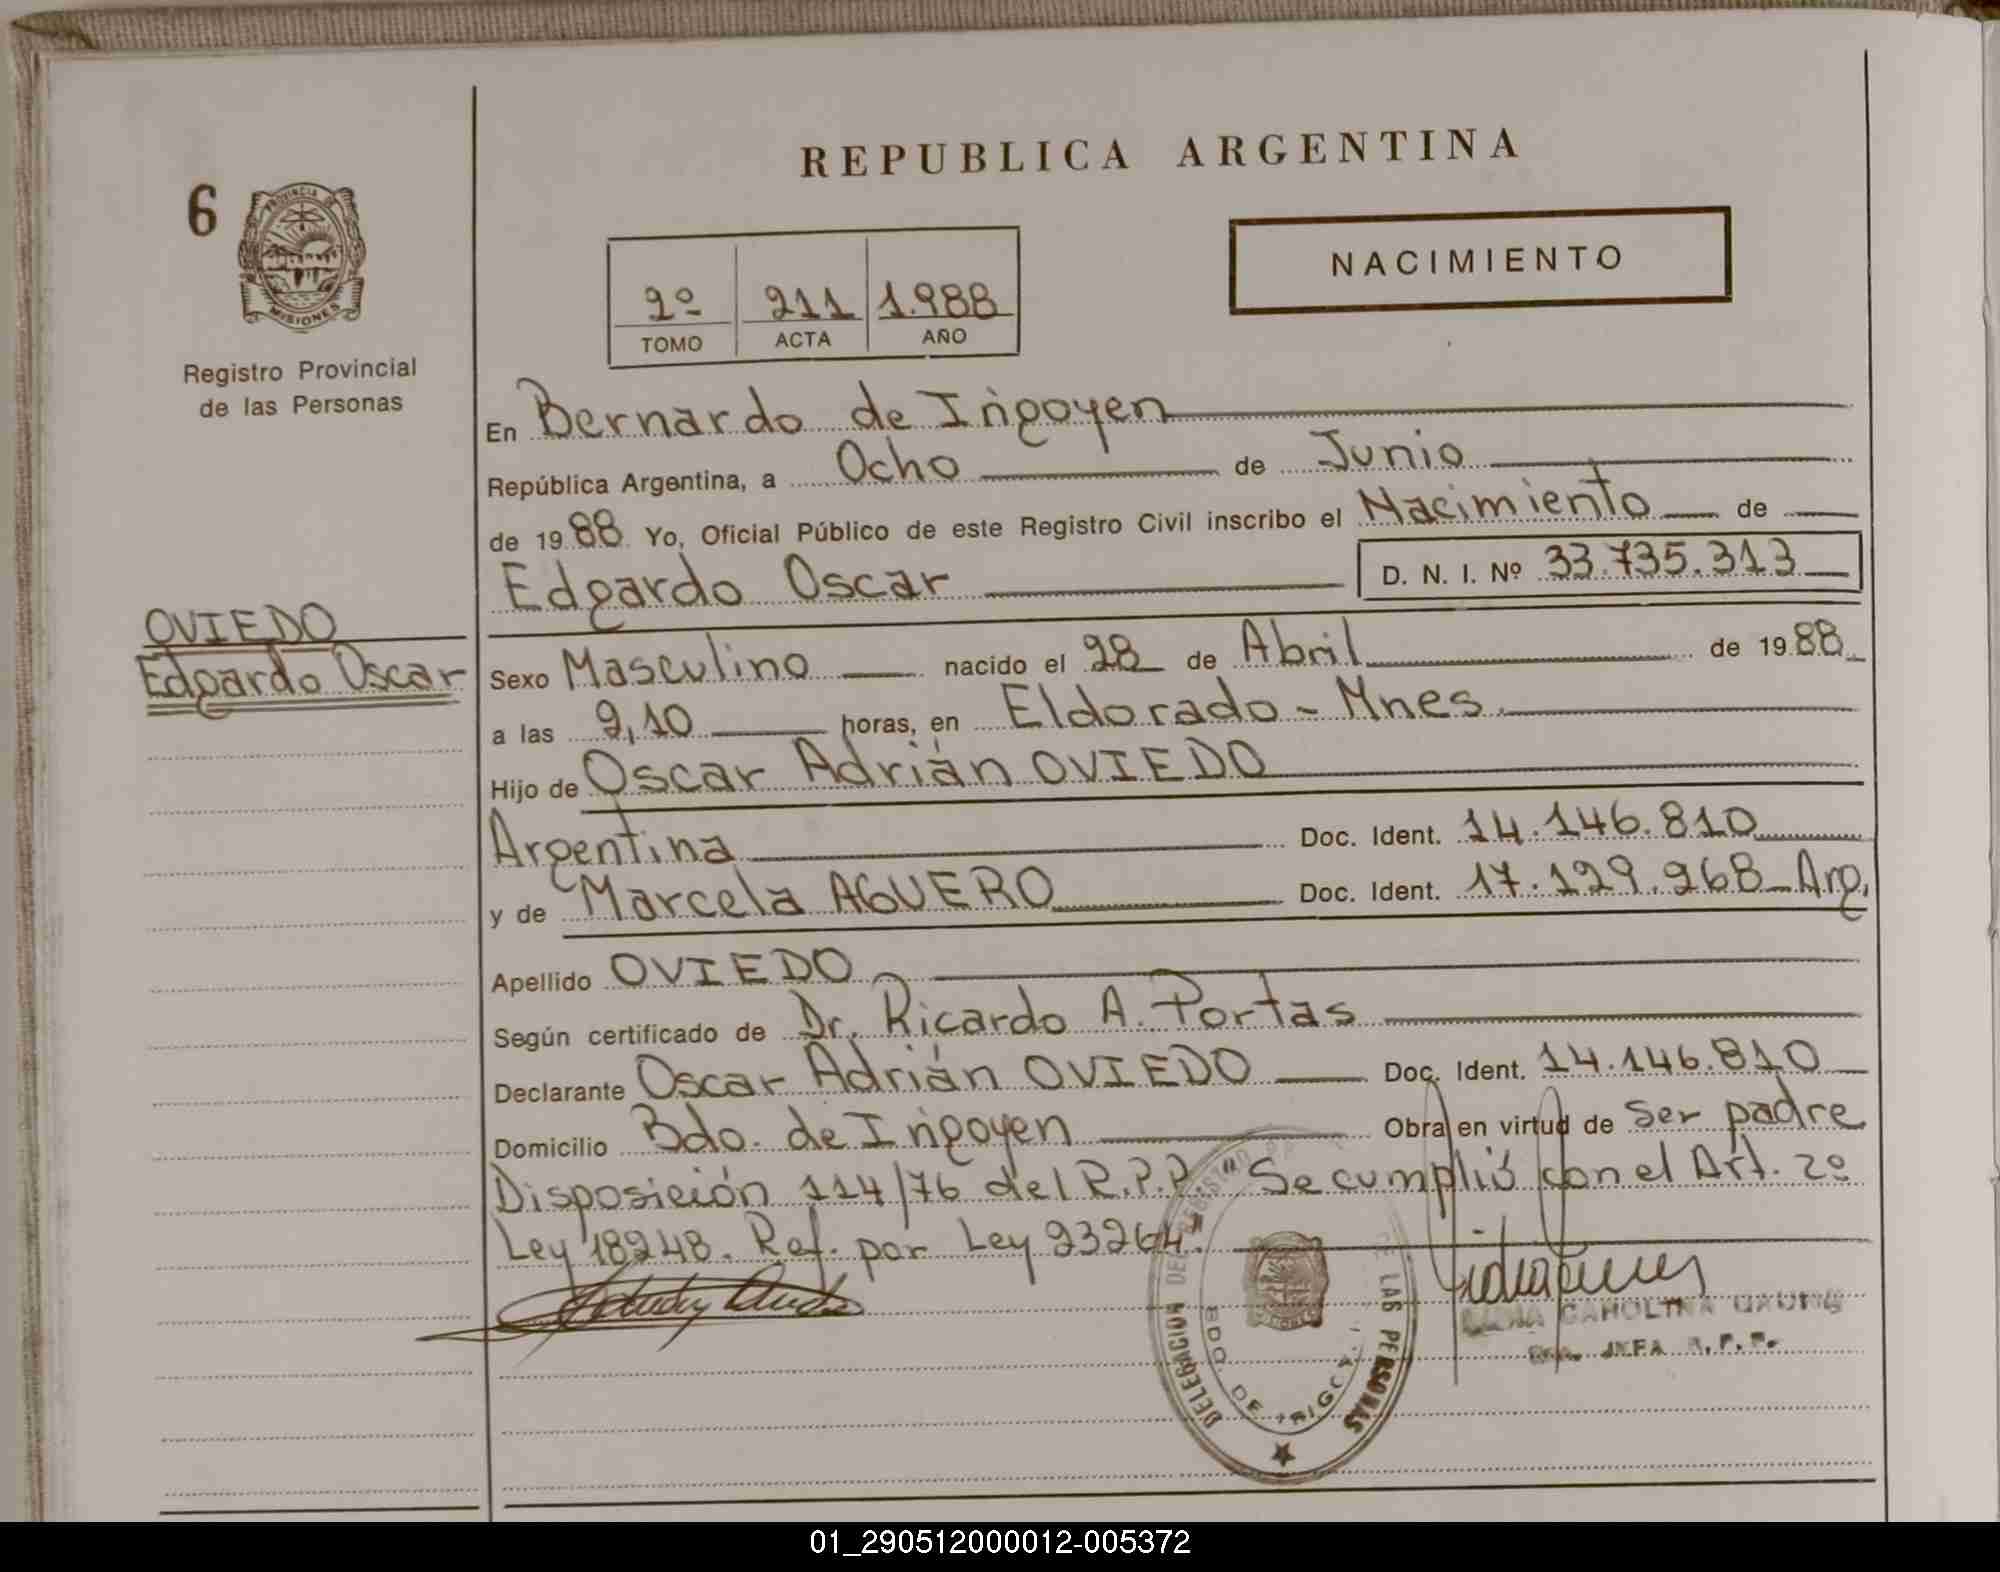 REPUBLICA ARGENTINA
6
PROVINCIA DE
MISIONES
NACIMIENTO
2º 211 1.988
TOMO ACTA AÑO
Registro Provincial
de las Personas
En Bernardo de Irigoyen
República Argentina, a Ocho de Junio
de 1988 Yo, Oficial Público de este Registro Civil inscribo el Nacimiento de
Edgardo Oscar D. N. I. Nº 33.735.313
OVIEDO
Edgardo Oscar
Sexo Masculino nacido el 28 de Abril de 1988
a las 9,10 horas, en Eldorado - Mnes.
Hijo de Oscar Adrián OVIEDO
Argentina Doc. Ident. 14.146.810
y de Marcela AGUERO Doc. Ident. 17.129.268 Arg.
Apellido OVIEDO
Según certificado de Dr. Ricardo A. Portas
Declarante Oscar Adrián OVIEDO Doc. Ident. 14.146.810
Domicilio Bdo. de Irigoyen Obra en virtud de Ser padre
Disposición 114/76 del R.P.P. "Se cumplió con el Art. 2º
Ley 18248. Ref. por Ley 23264".
DELEGACION DEL REGISTRO DE LAS PERSONAS
BDO. DE IRIGOY
CAROLINA
JEFA R.P.P.
01_290512000012-005372